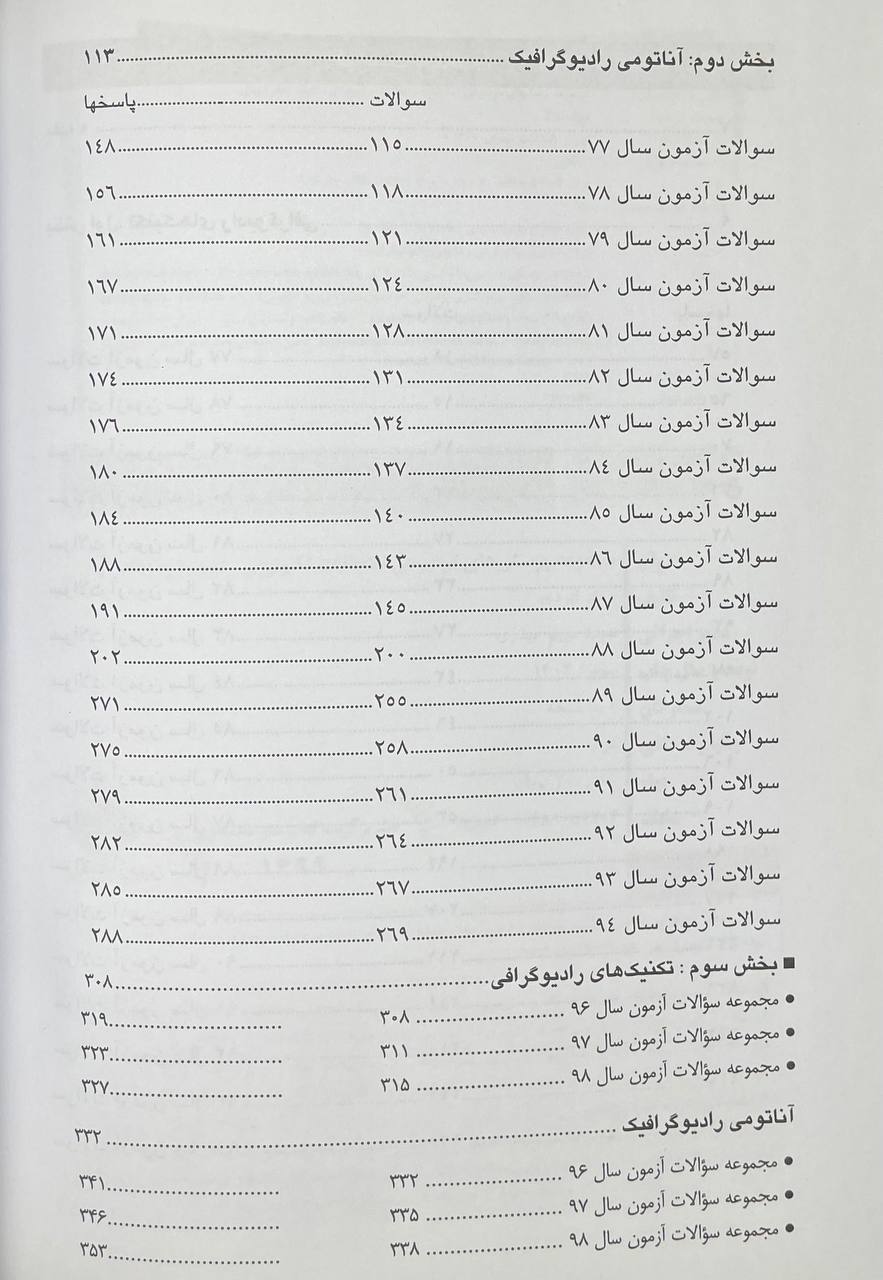 بخش دوم: آناتومی رادیوگرافیک ........ ۱۱۳
سوالات ........ پاسخها
سوالات آزمون سال ۷۷ ........ ۱۱۵ ........ ۱٤۸
سوالات آزمون سال ۷۸ ........ ۱۱۸ ........ ۱٥٦
سوالات آزمون سال ۷۹ ........ ۱۲۱ ........ ۱٦۱
سوالات آزمون سال ۸۰ ........ ۱۲٤ ........ ۱٦۷
سوالات آزمون سال ۸۱ ........ ۱۲۸ ........ ۱۷۱
سوالات آزمون سال ۸۲ ........ ۱۳۱ ........ ۱۷٤
سوالات آزمون سال ۸۳ ........ ۱۳٤ ........ ۱۷٦
سوالات آزمون سال ۸٤ ........ ۱۳۷ ........ ۱۸۰
سوالات آزمون سال ۸٥ ........ ۱٤۰ ........ ۱۸٤
سوالات آزمون سال ۸٦ ........ ۱٤۳ ........ ۱۸۸
سوالات آزمون سال ۸۷ ........ ۱٤٥ ........ ۱۹۱
سوالات آزمون سال ۸۸ ........ ۲۰۰ ........ ۲۰۲
سوالات آزمون سال ۸۹ ........ ۲٥٥ ........ ۲۷۱
سوالات آزمون سال ۹۰ ........ ۲٥۸ ........ ۲۷٥
سوالات آزمون سال ۹۱ ........ ۲٦۱ ........ ۲۷۹
سوالات آزمون سال ۹۲ ........ ۲٦٤ ........ ۲۸۲
سوالات آزمون سال ۹۳ ........ ۲٦۷ ........ ۲۸٥
سوالات آزمون سال ۹٤ ........ ۲٦۹ ........ ۲۸۸
■ بخش سوم : تکنیک‌های رادیوگرافی ........ ۳۰۸
● مجموعه سؤالات آزمون سال ۹۶ ........ ۳۰۸ ........ ۳۱۹
● مجموعه سؤالات آزمون سال ۹۷ ........ ۳۱۱ ........ ۳۲۳
● مجموعه سؤالات آزمون سال ۹۸ ........ ۳۱۵ ........ ۳۲۷
آناتومی رادیوگرافیک ........ ۳۳۲
● مجموعه سؤالات آزمون سال ۹۶ ........ ۳۳۲ ........ ۳۴۱
● مجموعه سؤالات آزمون سال ۹۷ ........ ۳۳۵ ........ ۳۴۶
● مجموعه سؤالات آزمون سال ۹۸ ........ ۳۳۸ ........ ۳۵۳